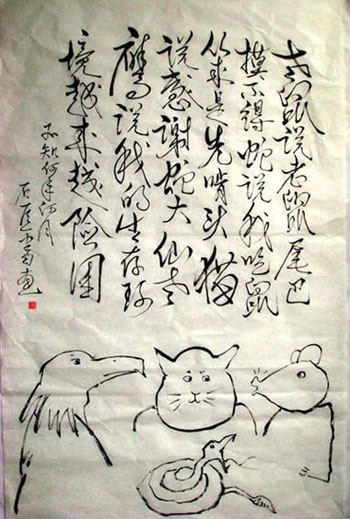 老鼠说老鼠尾巴
摸不得蛇说我吃鼠
从来是先啃头猫
说感谢蛇大仙老
鹰说我的生存环
境越来越险困
不知何年何月